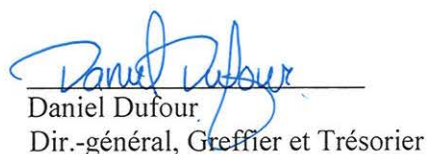 Daniel Dufour
Daniel Dufour
Dir.-général, Greffier et Trésorier